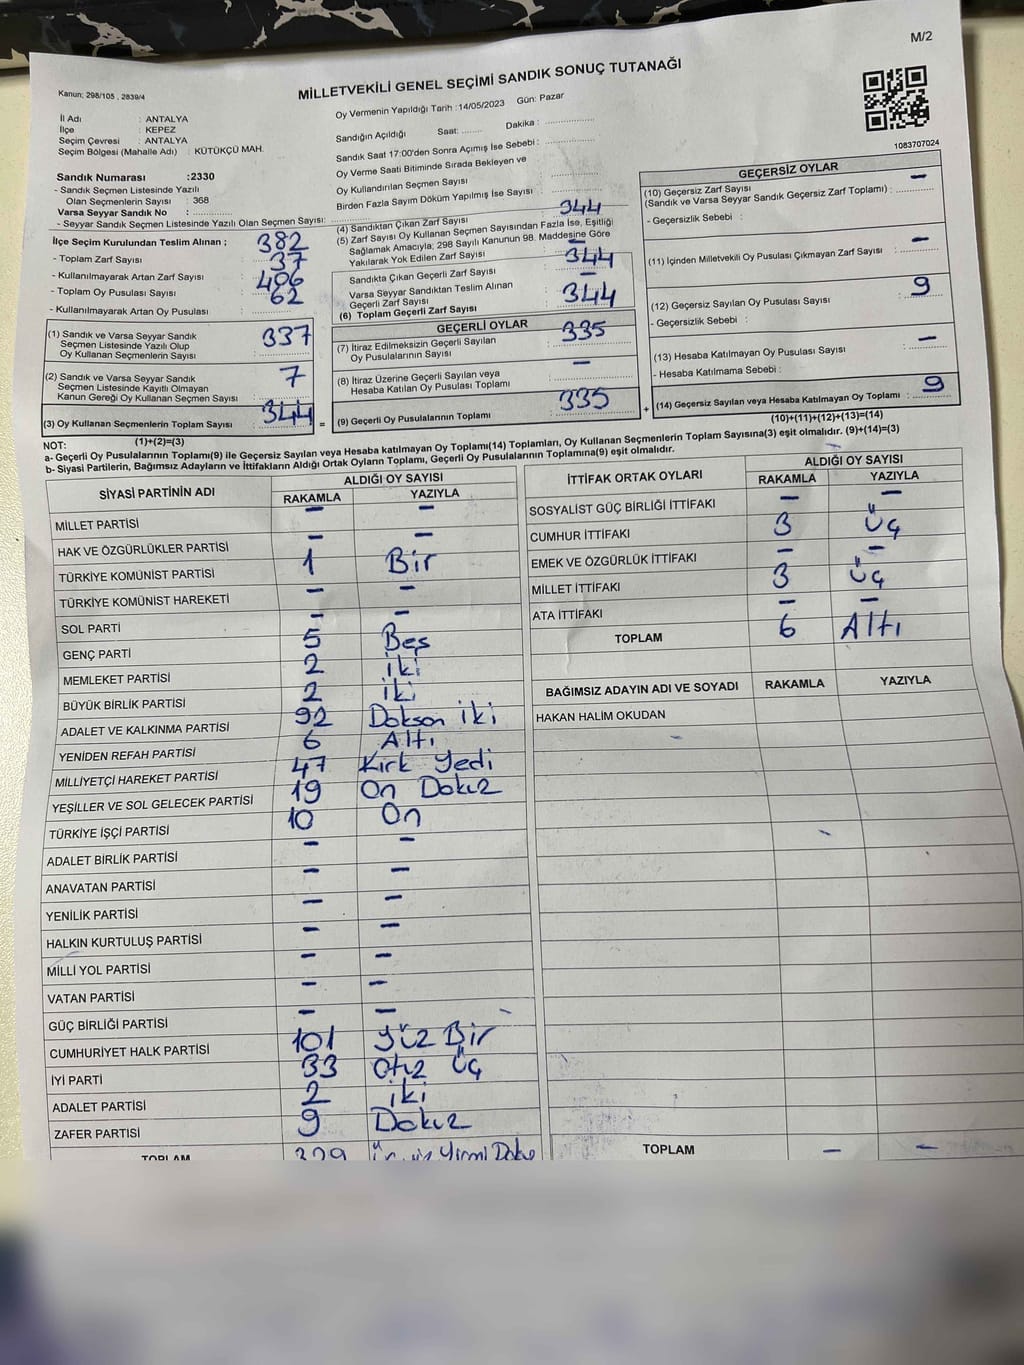 M/2
MİLLETVEKİLİ GENEL SEÇİMİ SANDIK SONUÇ TUTANAĞI
Kanun: 298/105 , 2839/4
İl Adı : ANTALYA
İlçe : KEPEZ
Seçim Çevresi : ANTALYA
Seçim Bölgesi (Mahalle Adı) : KÜTÜKÇÜ MAH.
Sandık Numarası :2330
- Sandık Seçmen Listesinde Yazılı
Olan Seçmenlerin Sayısı : 368
Varsa Seyyar Sandık No : ............
- Seyyar Sandık Seçmen Listesinde Yazılı Olan Seçmen Sayısı: ............
Oy Vermenin Yapıldığı Tarih :14/05/2023 Gün: Pazar
Sandığın Açıldığı Saat: ........ Dakika : ............
Sandık Saat 17:00'den Sonra Açımış İse Sebebi : ............
Oy Verme Saati Bitiminde Sırada Bekleyen ve
Oy Kullandırılan Seçmen Sayısı : ............
Birden Fazla Sayım Döküm Yapılmış İse Sayısı : ............
1083707024
İlçe Seçim Kurulundan Teslim Alınan ;
- Toplam Zarf Sayısı : 382
- Kullanılmayarak Artan Zarf Sayısı : 37
- Toplam Oy Pusulası Sayısı : 406
- Kullanılmayarak Artan Oy Pusulası : 62
(1) Sandık ve Varsa Seyyar Sandık
Seçmen Listesinde Yazılı Olup
Oy Kullanan Seçmenlerin Sayısı : 337
(2) Sandık ve Varsa Seyyar Sandık
Seçmen Listesinde Kayıtlı Olmayan
Kanun Gereği Oy Kullanan Seçmen Sayısı : 7
(3) Oy Kullanan Seçmenlerin Toplam Sayısı : 344 =
(1)+(2)=(3)
(4) Sandıktan Çıkan Zarf Sayısı : 344
(5) Zarf Sayısı Oy Kullanan Seçmen Sayısından Fazla İse, Eşitliği
Sağlamak Amacıyla; 298 Sayılı Kanunun 98. Maddesine Göre
Yakılarak Yok Edilen Zarf Sayısı : -
Sandıkta Çıkan Geçerli Zarf Sayısı : 344
Varsa Seyyar Sandıktan Teslim Alınan
Geçerli Zarf Sayısı : -
(6) Toplam Geçerli Zarf Sayısı : 344
GEÇERLİ OYLAR
(7) İtiraz Edilmeksizin Geçerli Sayılan
Oy Pusulalarının Sayısı : 335
(8) İtiraz Üzerine Geçerli Sayılan veya
Hesaba Katılan Oy Pusulası Toplamı : -
(9) Geçerli Oy Pusulalarının Toplamı : 335 +
GEÇERSİZ OYLAR
(10) Geçersiz Zarf Sayısı
(Sandık ve Varsa Seyyar Sandık Geçersiz Zarf Toplamı) : -
- Geçersizlik Sebebi :
(11) İçinden Milletvekili Oy Pusulası Çıkmayan Zarf Sayısı : -
(12) Geçersiz Sayılan Oy Pusulası Sayısı : 9
- Geçersizlik Sebebi :
(13) Hesaba Katılmayan Oy Pusulası Sayısı : -
- Hesaba Katılmama Sebebi :
(14) Geçersiz Sayılan veya Hesaba Katılmayan Oy Toplamı : 9
(10)+(11)+(12)+(13)=(14)
NOT:
a- Geçerli Oy Pusulalarının Toplamı(9) ile Geçersiz Sayılan veya Hesaba katılmayan Oy Toplamı(14) Toplamları, Oy Kullanan Seçmenlerin Toplam Sayısına(3) eşit olmalıdır. (9)+(14)=(3)
b- Siyasi Partilerin, Bağımsız Adayların ve İttifakların Aldığı Ortak Oyların Toplamı, Geçerli Oy Pusulalarının Toplamına(9) eşit olmalıdır.
SİYASİ PARTİNİN ADI ALDIĞI OY SAYISI
RAKAMLA YAZIYLA
MİLLET PARTİSİ - -
HAK VE ÖZGÜRLÜKLER PARTİSİ - -
TÜRKİYE KOMÜNİST PARTİSİ 1 Bir
TÜRKİYE KOMÜNİST HAREKETİ - -
SOL PARTİ - -
GENÇ PARTİ 5 Beş
MEMLEKET PARTİSİ 2 iki
BÜYÜK BİRLİK PARTİSİ 2 iki
ADALET VE KALKINMA PARTİSİ 92 Doksan iki
YENİDEN REFAH PARTİSİ 6 Altı
MİLLİYETÇİ HAREKET PARTİSİ 47 Kırk Yedi
YEŞİLLER VE SOL GELECEK PARTİSİ 19 On Dokuz
TÜRKİYE İŞÇİ PARTİSİ 10 On
ADALET BİRLİK PARTİSİ - -
ANAVATAN PARTİSİ - -
YENİLİK PARTİSİ - -
HALKIN KURTULUŞ PARTİSİ - -
MİLLİ YOL PARTİSİ - -
VATAN PARTİSİ - -
GÜÇ BİRLİĞİ PARTİSİ - -
CUMHURİYET HALK PARTİSİ 101 Yüz Bir
İYİ PARTİ 33 Otuz Üç
ADALET PARTİSİ 2 iki
ZAFER PARTİSİ 9 Dokuz
TOPLAM 329 Üç yüz Yirmi Dokuz
İTTİFAK ORTAK OYLARI ALDIĞI OY SAYISI
RAKAMLA YAZIYLA
SOSYALİST GÜÇ BİRLİĞİ İTTİFAKI - -
CUMHUR İTTİFAKI 3 Üç
EMEK VE ÖZGÜRLÜK İTTİFAKI - -
MİLLET İTTİFAKI 3 Üç
ATA İTTİFAKI - -
TOPLAM 6 Altı
BAĞIMSIZ ADAYIN ADI VE SOYADI RAKAMLA YAZIYLA
HAKAN HALİM OKUDAN
TOPLAM - -